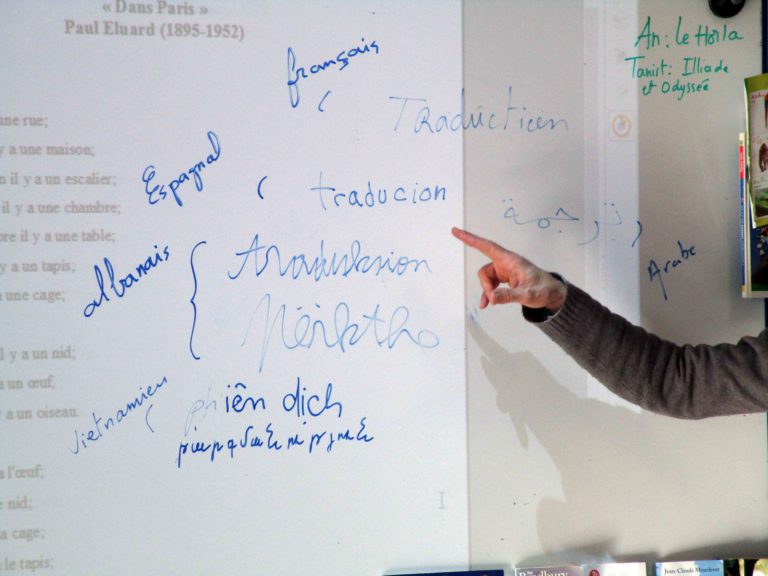 « Dans Paris »
Paul Eluard (1895-1952)
une rue;
y a une maison;
n il y a un escalier;
il y a une chambre;
re il y a une table;
y a un tapis;
a une cage;
l y a un nid;
a un œuf,
y a un oiseau.
a l'œuf;
e nid;
a cage;
le tapis;
français
Traduction
Espagnol
traducion
ترجمة
Arabe
albanais
Traduksion
Përktho
Vietnamien
phiên dich
An : Le Horla
Tanist : Illiade
et Odyssée
Bradbury
Jean-Claude Mourlevat